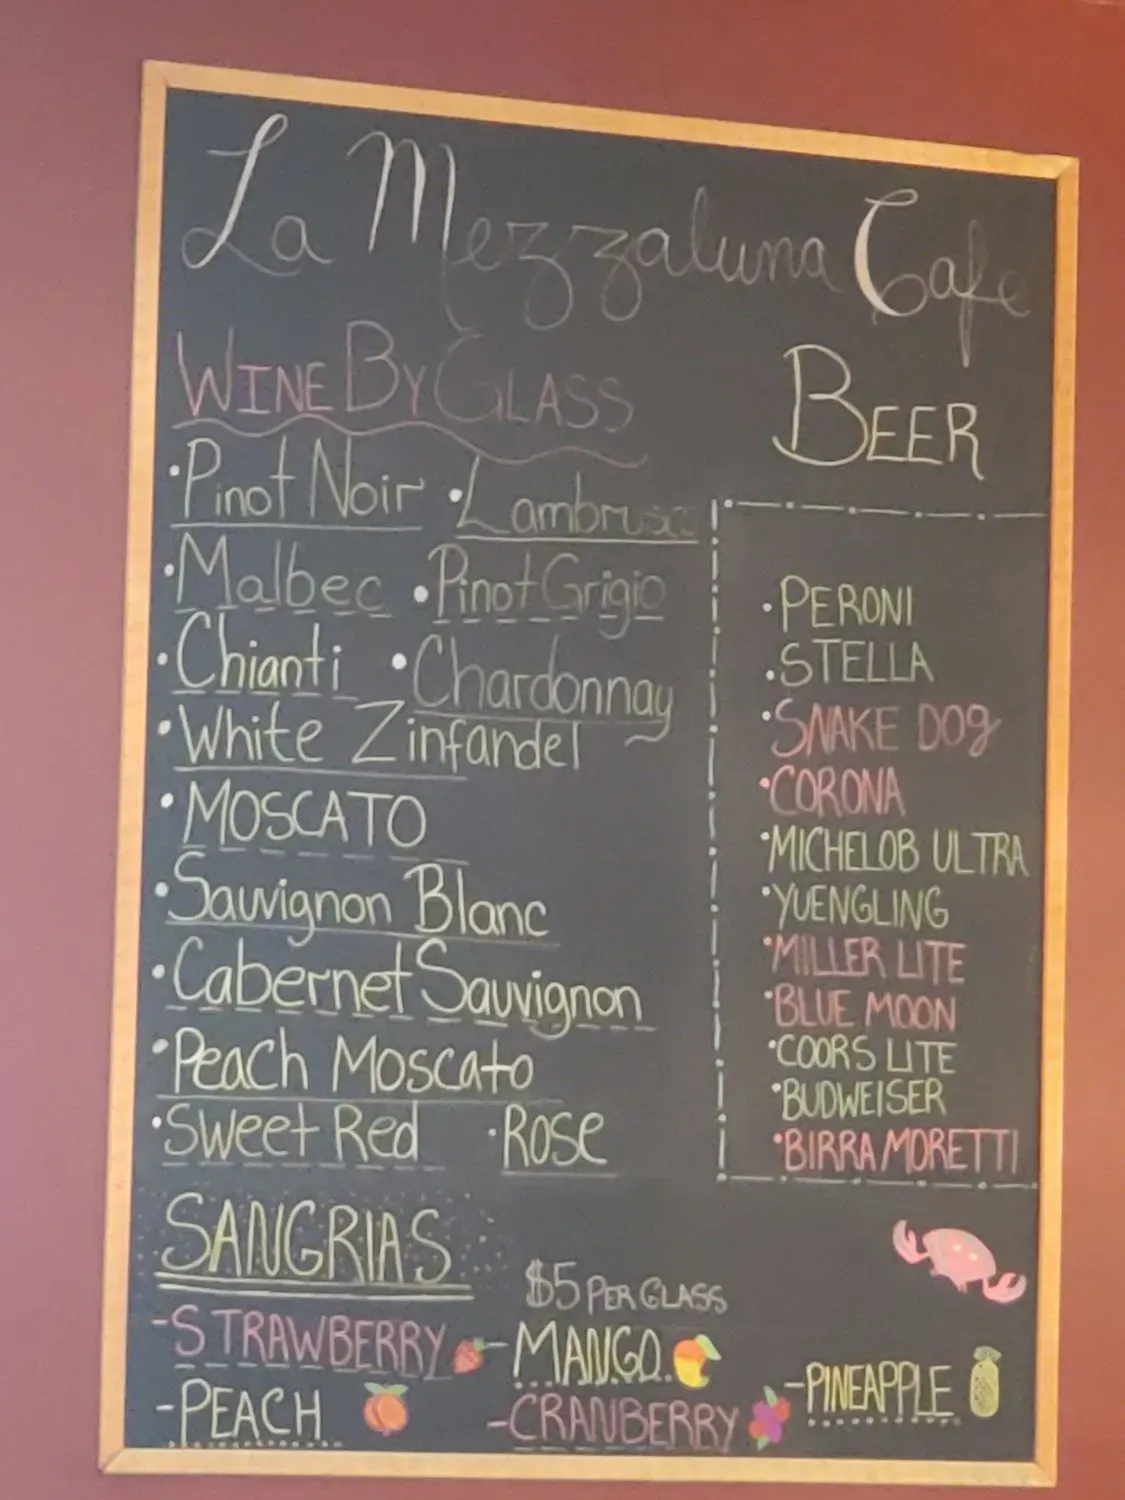 La Mezzaluna Cafe
WINE BY GLASS
•Pinot Noir •Lambrusco
•Malbec •Pinot Grigio
•Chianti •Chardonnay
•White Zinfandel
•MOSCATO
•Sauvignon Blanc
•Cabernet Sauvignon
•Peach Moscato
•Sweet Red •ROSE
BEER
•PERONI
•STELLA
•SNAKE DOg
•CORONA
•MICHELOB ULTRA
•YUENGLING
•MILLER LITE
•BLUE MOON
•COORS LITE
•BUDWEISER
•BIRRA MORETTI
SANGRIAS
$5 PER GLASS
-STRAWBERRY -MANGO
-PINEAPPLE
-PEACH -CRANBERRY